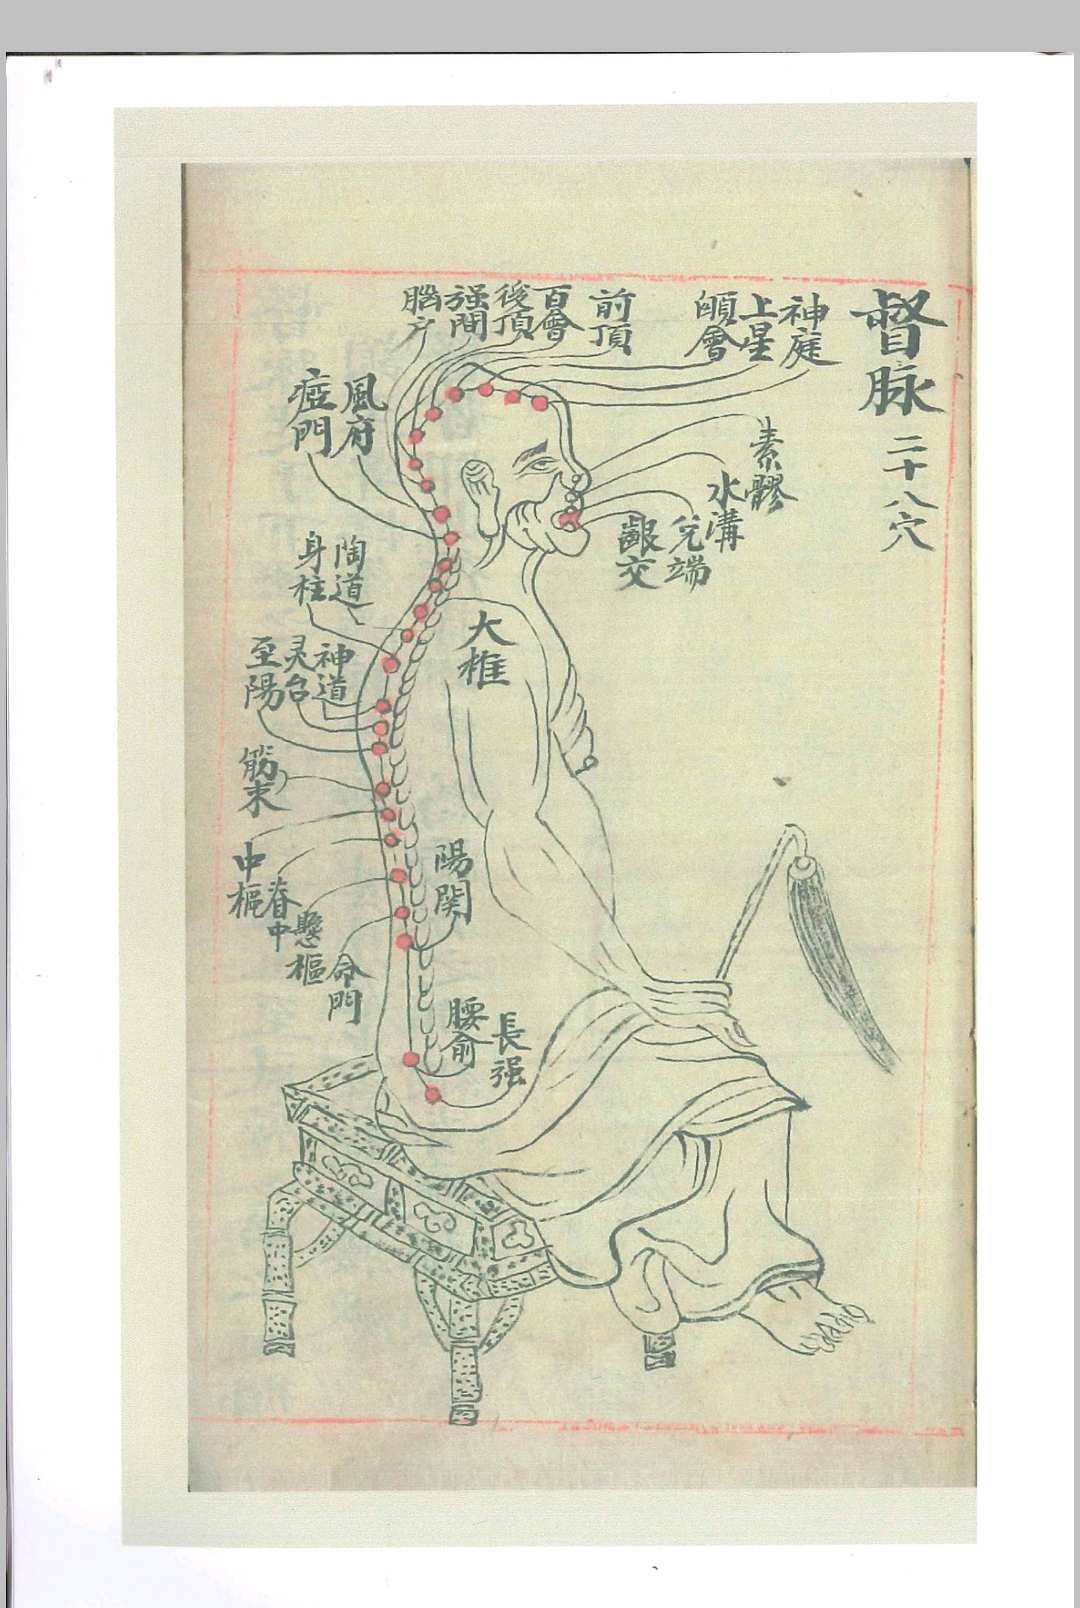 督脉
二十八穴
神庭
上星
顖會
前頂
百會
後頂
强間
腦户
風府
瘂門
素髎
水溝
兌端
齦交
陶道
身柱
大椎
神道
灵台
至陽
筋束
中樞
脊中
懸樞
命門
陽関
腰俞
長强